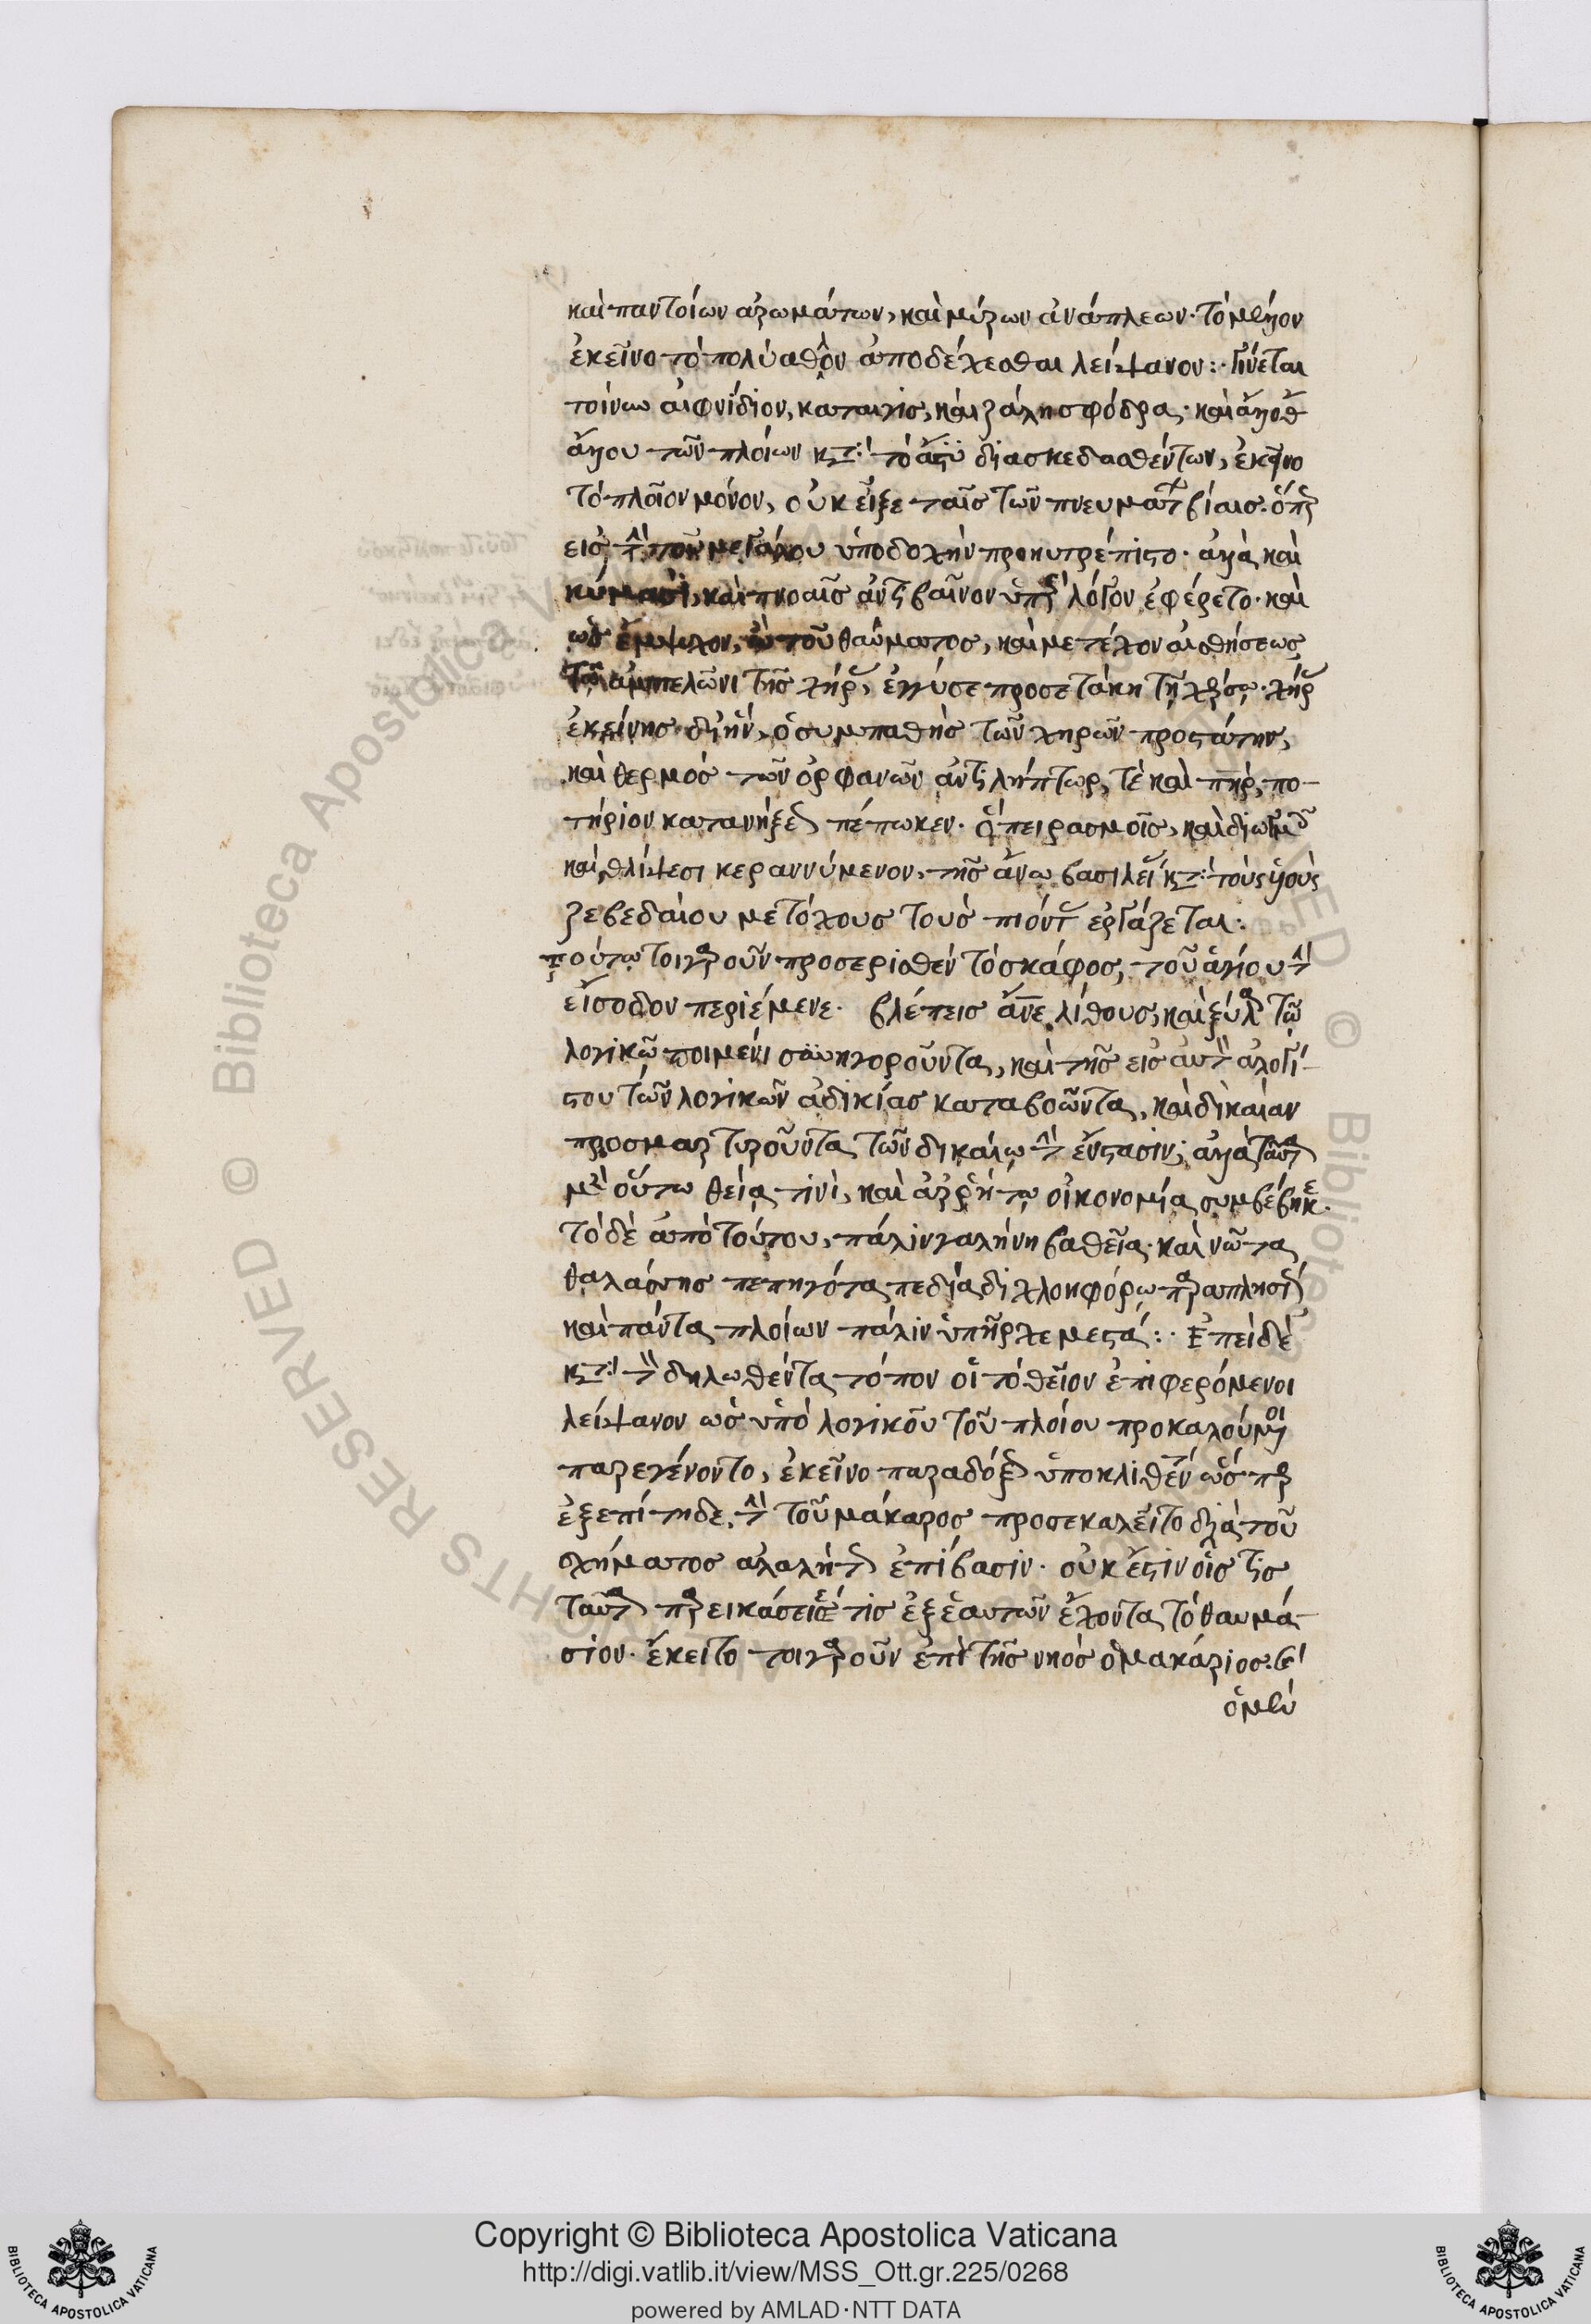 καὶ παντοίων ἀρωμάτων, καὶ μύρων ἀνάπλεων· τὸ μέλλον
ἐκεῖνο τὸ πολύαθλον ἀποδέχεσθαι λείψανον:· Γίνεται
τοίνυν αἰφνίδιον, καταιγὶς, καὶ ζάλη σφόδρα· καὶ ἄλλοθ
ἄλλου τῶν πλοίων κατὰ τὸ ἄστυ διασκεδασθέντων, ἐκεῖνο
τὸ πλοῖον μόνον, οὐκ εἶξε ταῖς τῶν πνευμάτων βίαις· ὅπερ
εἰς τὴν τοῦ μεγάλου ὑποδοχὴν προηυτρέπιστο· ἀλλὰ καὶ
κύμασι, καὶ πνοαῖς ἀντιβαῖνον ὑπὲρ λόγον ἐφέρετο· καὶ
ὡς ἔμψυχον, ὢ τοῦ θαύματος, καὶ μετέχον αἰσθήσεως
τῷ ἀμπελῶνι τῆς χήρας, ἐγγύς προσετάκη τῇ χέρσῳ· χήρας
ἐκείνης· δι' ἣν, ὁ συμπαθὴς τῶν χηρῶν προστάτης,
καὶ θερμὸς τῶν ὀρφανῶν ἀντιλήπτωρ, τὲ καὶ πηρ, πο-
τήριον κατανύξεως πέπωκεν· ὃ πειρασμοῖς, καὶ διωγμοῖς
καὶ θλίψεσι κεραννύμενον, τῆς ἄνω βασιλείας κατὰ τοὺς υἱοὺς
ζεβεδαίου μετόχους τοὺς πιόντας ἐργάζεται:
τούτῳ τοιγαροῦν προσερισθὲν τὸ σκάφος, τοῦ ἁγίου τὴν
εἴσοδον περιέμενε· βλέπεις ἄνε λίθους, καὶ ξύλα τῷ
λογικῷ ποιμένι συνηγοροῦντα, καὶ τῆς εἰς αὐτὸν ἀλογί-
στου τῶν λογικῶν ἀδικίας καταβοῶντα, καὶ δικαίαν
προσμαρτυροῦντα τῶν δικαίῳ τὴν ἔνστασιν; ἀλλὰ ταῦτα
μὲν οὕτω θείᾳ τινὶ, καὶ ἀρρήτῳ οἰκονομίᾳ συμβέβηκε·
τὸ δὲ ἀπὸ τούτου, πάλιν γαλήνη βαθεῖα· καὶ νῶτα
θαλάσσης πεπηγότα πεδιάδι χλοηφόρῳ παραπλησίως
καὶ πάντα πλοίων πάλιν ὑπῆρχε μεστά:· Ἐπεὶ δὲ
κατὰ τὸν δηλωθέντα τόπον οἱ τὸ θεῖον ἐπιφερόμενοι
λείψανον ὡς ὑπὸ λογικοῦ τοῦ πλοίου προκαλούμενοι
παρεγένοντο, ἐκεῖνο παραδόξως ὑποκλιθὲν ὥσπερ
ἐξεπίτηδες τὴν τοῦ μάκαρος προσεκαλεῖτο διὰ τοῦ
σχήματος ἀλαλήτως ἐπίβασιν· οὐκ ἔστιν οἷς τις
ταῦτα παρεικάσειέ τις ἐξ ἑαυτῶν ἔχοντα τὸ θαυμά-
σιον· ἔκειτο τοιγαροῦν ἐπὶ τῆς νηὸς ὁ μακάριος·
ὁ μὲν